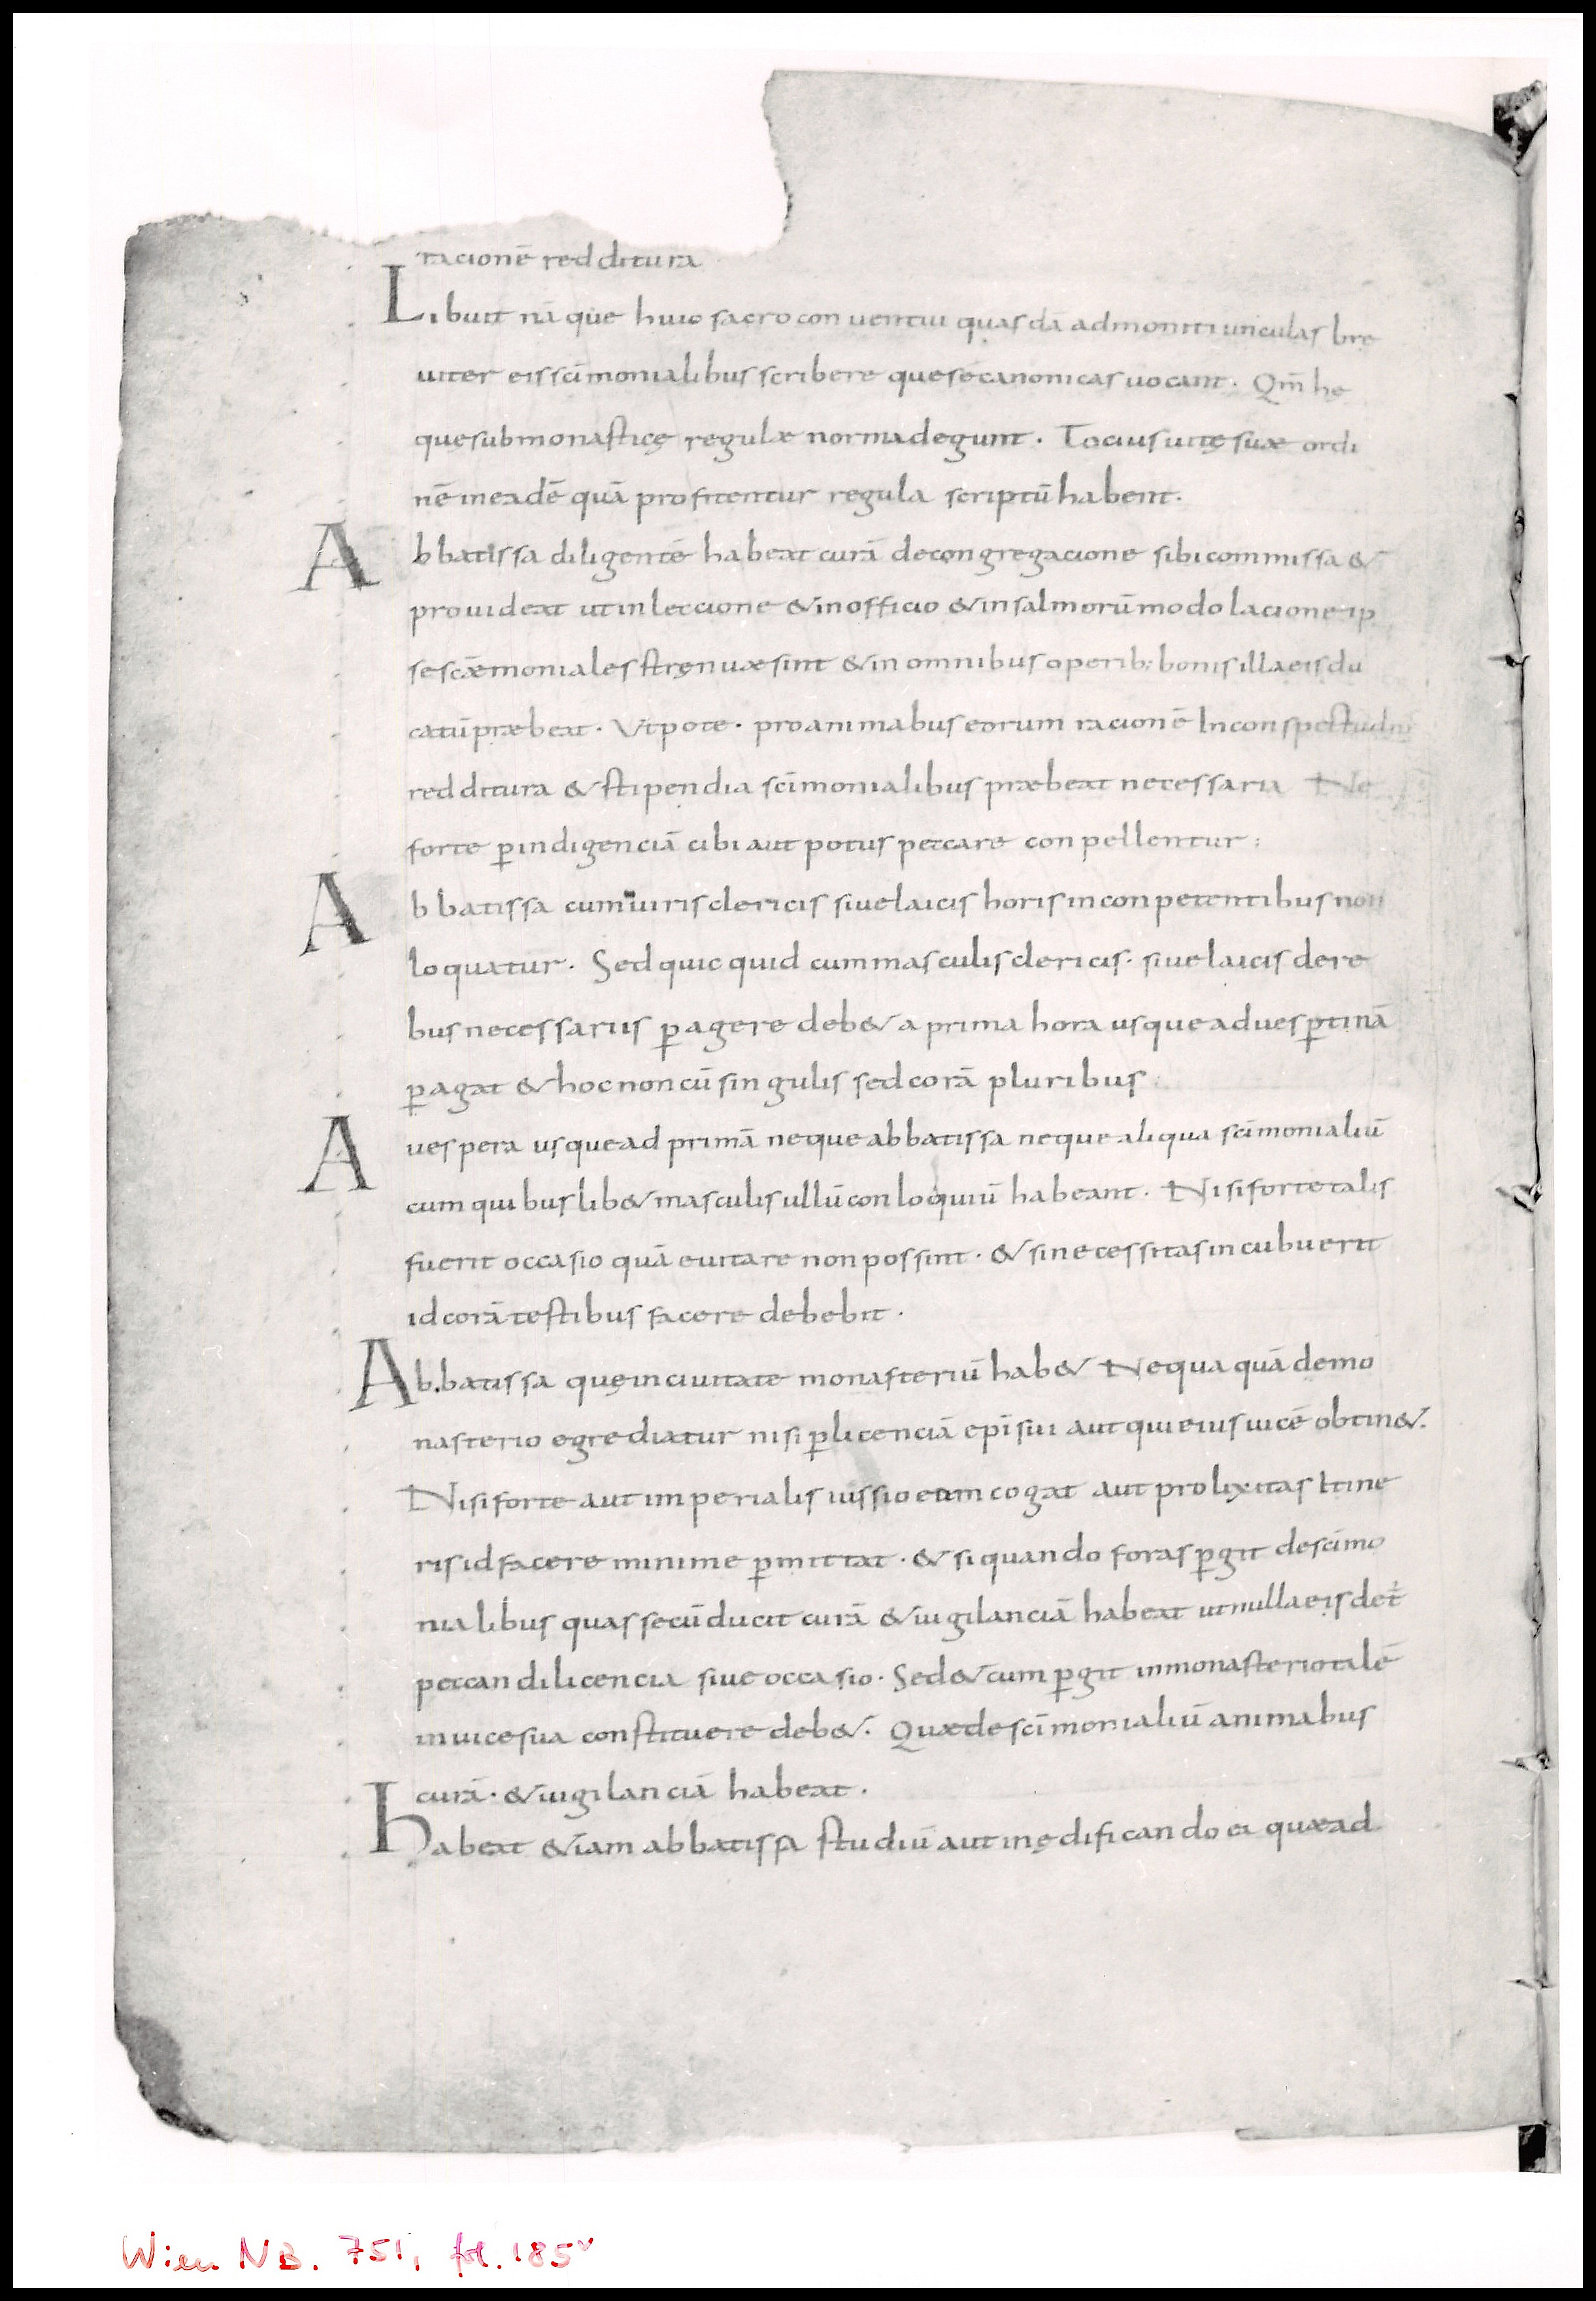 racionē redditura
Libuit nāque huic sacro conuentui quasdā admonitiunculas bre
uiter eis scīmonialibus scribere que se canonicas uocant. Qm̄ he
quę sub monasticę regulæ norma degunt. Tocius uitę suæ ordi
nē in eadē quā profitentur regula scriptū habent.
Abbatissa diligentē habeat curā de congregacione sibi commissa &
prouideat ut in leccione & in officio & in salmorū modolacione ip
se scæmoniales stręnuæ sint & in omnibus operib; bonis illa eis du
catū præbeat. Vtpote. pro animabus eorum racionē In conspectu dn̄i
redditura & stipendia scīmonialibus præbeat necessaria Ne
forte p̱ indigenciā cibi aut potus peccare conpellentur;
Abbatissa cum uiris clericis siue laicis horis inconpetentibus non
loquatur. Sed quicquid cum masculis clericis. siue laicis de re
bus necessariis p̱agere deb& a prima hora usque ad uesp̱tinā
p̱agat & hoc non cū singulis sed corā pluribus
A uespera usque ad primā neque abbatissa neque aliqua scīmonialiū
cum quibuslib& masculis ullū conloquiū habeant. Nisi forte talis
fuerit occasio quā euitare non possint. & si necessitas incubuerit
id corā testibus facere debebit.
Abbatissa quę in ciuitate monasteriū hab& Nequaquā de mo
nasterio egrediatur nisi p̱ licenciā ep̄i sui aut qui eius uicē obtin&.
Nisi forte aut imperialis iussio eum cogat aut prolixitas Itine
ris id facere minime p̱mittat. & si quando foras p̱git de scīmo
nialibus quas secū ducit curā & uigilanciā habeat ut nulla eis det̄
peccandi licencia siue occasio. Sed & cum p̱git in monasterio talē
in uice sua constituere deb&. Quæ de scīmonialiū animabus
curā. & uigilanciā habeat.
Habeat &iam abbatissa studiū aut in ędificando ea quæ ad
Wien NB. 751, fol. 185v